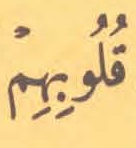 قُلُوبِهِمْ